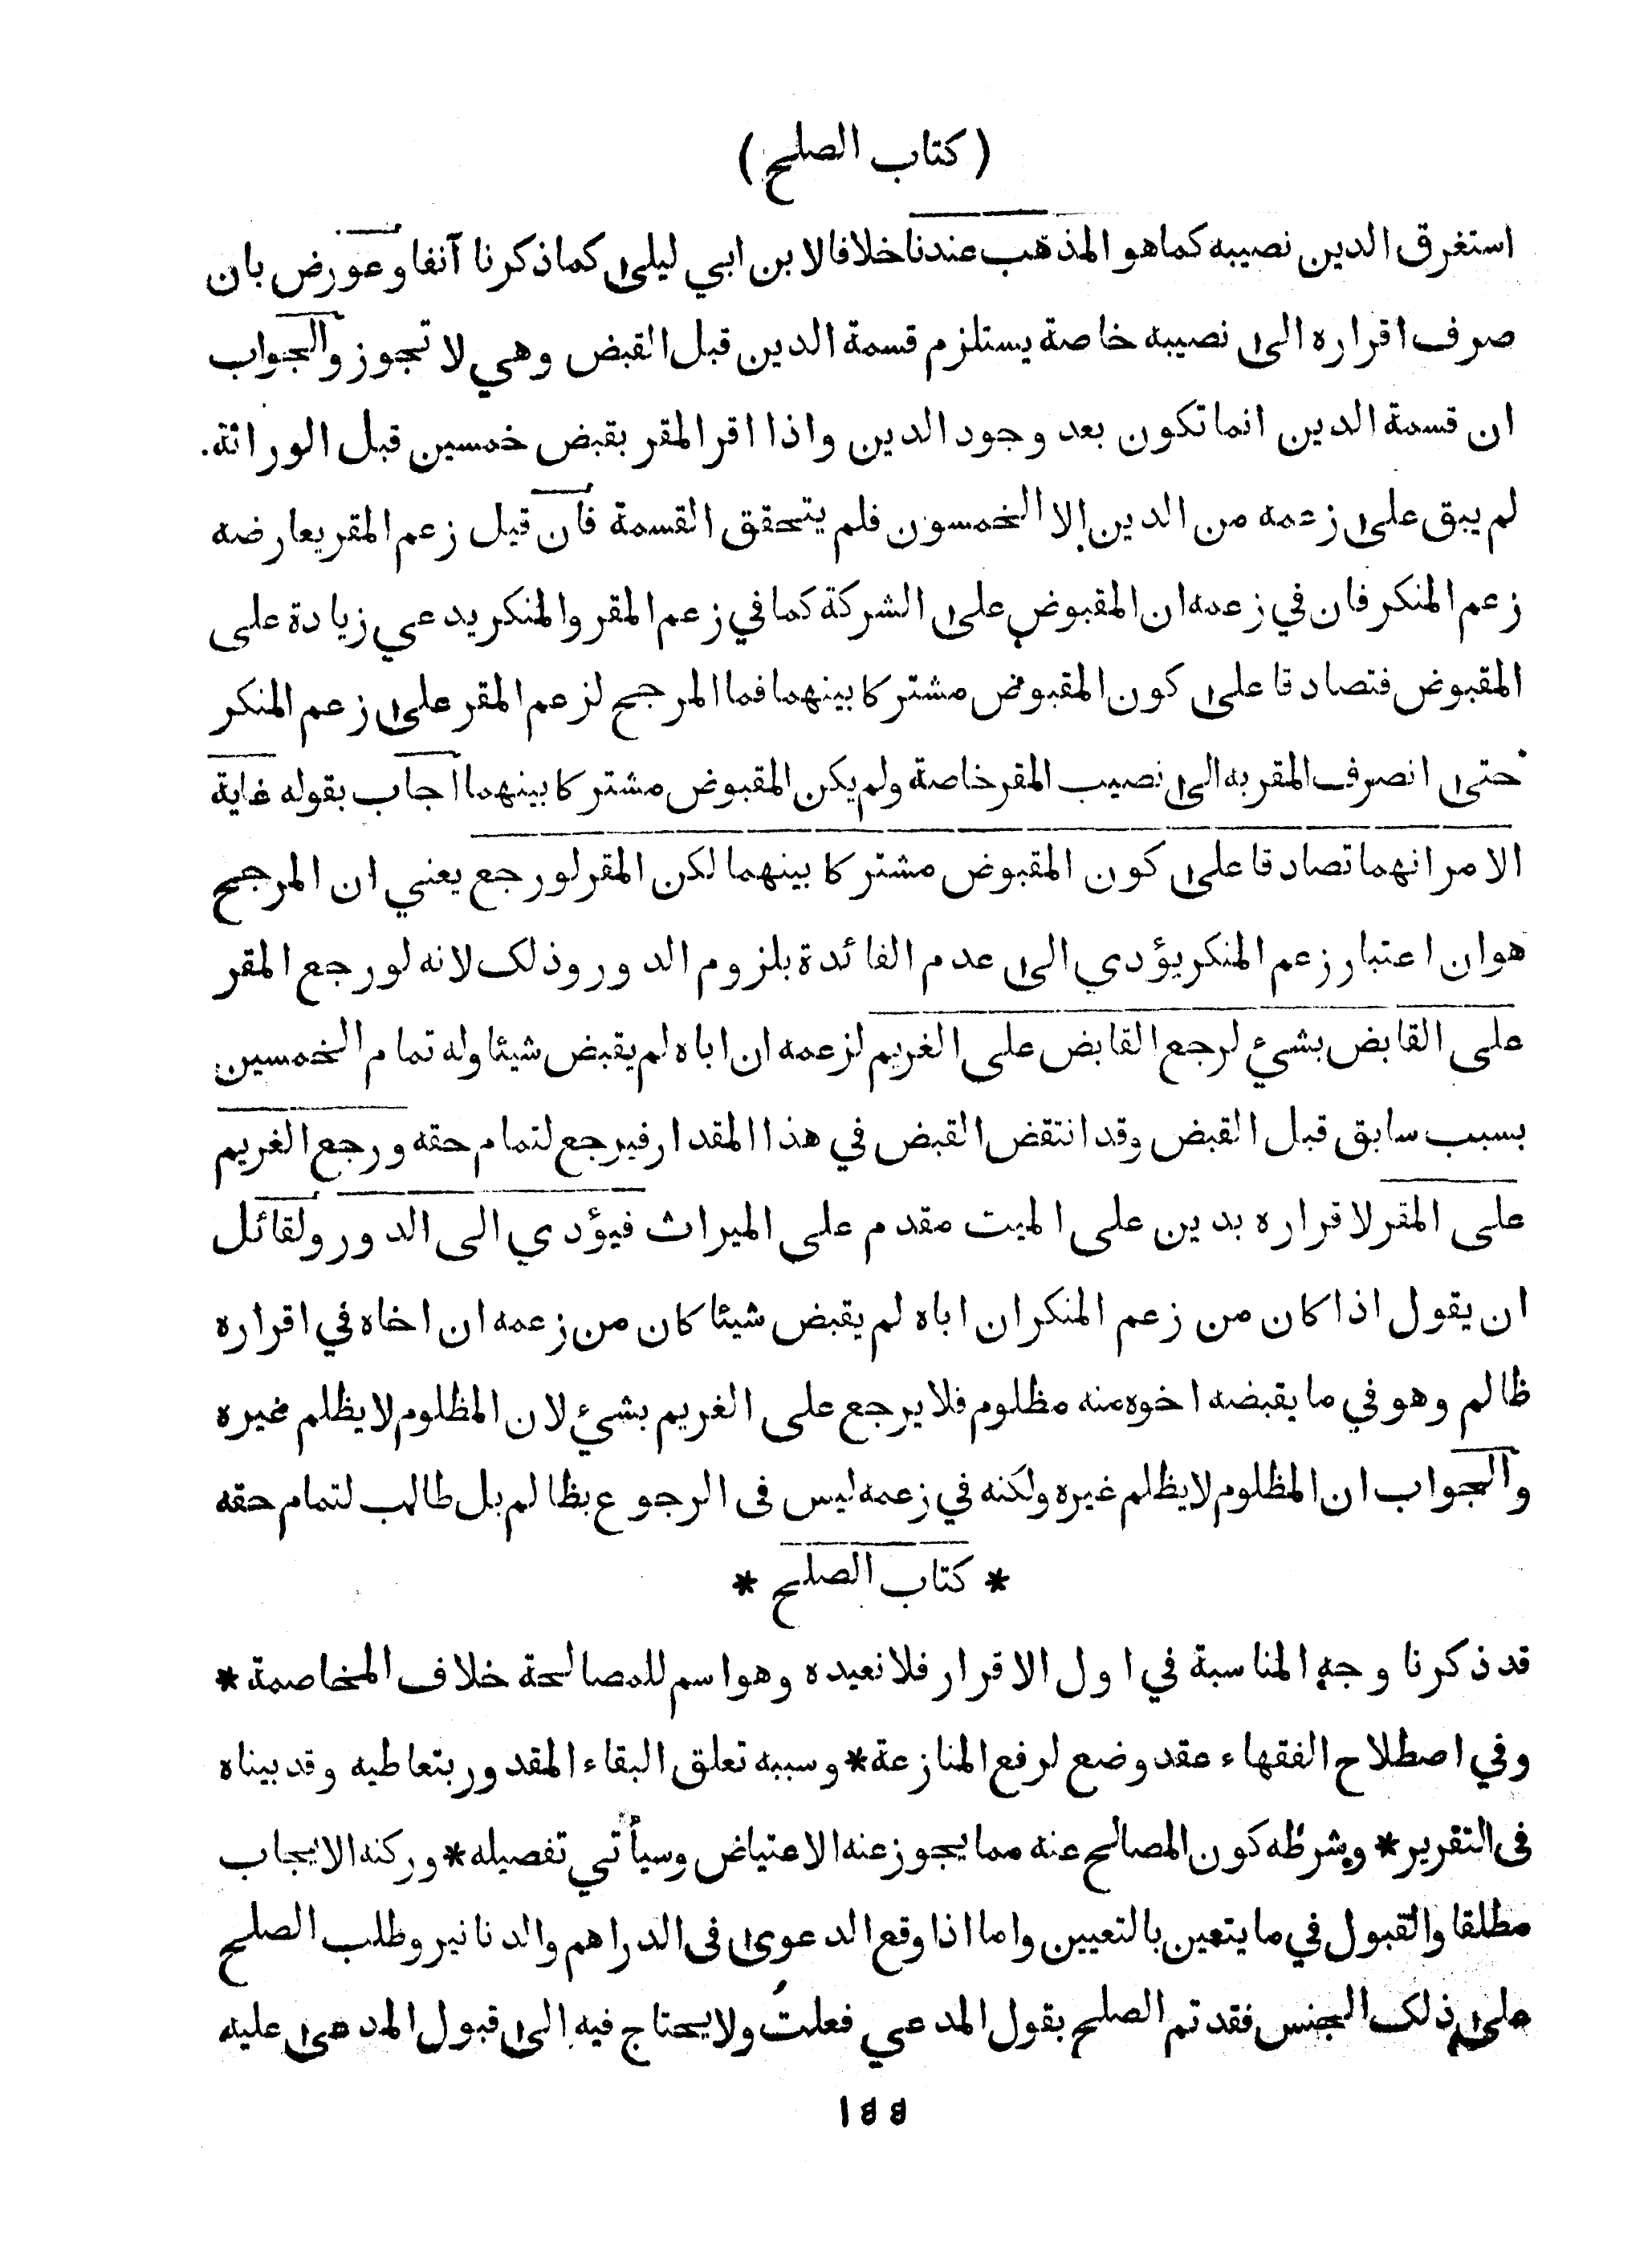 ( كتاب الصلح )
استغرق الدين نصيبه كما هو المذهب عندنا خلافا لابن ابي ليلى كما ذكرنا آنفا وعورض بان
صرف اقراره الى نصيبه خاصة يستلزم قسمة الدين قبل القبض وهي لا تجوز والجواب
ان قسمة الدين انما تكون بعد وجود الدين واذا اقر المقر بقبض خمسين قبل الوراثة.
لم يبق على زعمه من الدين إلا الخمسون فلم يتحقق القسمة فان قيل زعم المقر يعارضه
زعم المنكر فان في زعمه ان المقبوض على الشركة كما في زعم المقر والمنكر يدعي زيادة على
المقبوض فتصادقا على كون المقبوض مشتركا بينهما فما المرجح لزعم المقر على زعم المنكر
حتى انصرف المقر به الى نصيب المقر خاصة ولم يكن المقبوض مشتركا بينهما اجاب بقوله غاية
الامر انهما تصادقا على كون المقبوض مشتركا بينهما لكن المقر لو رجع يعني ان المرجح
هو ان اعتبار زعم المنكر يؤدي الى عدم الفائدة بلزوم الدور وذلك لانه لو رجع المقر
على القابض بشئ لرجع القابض على الغريم لزعمه ان اباه لم يقبض شيئا وله تمام الخمسين
بسبب سابق قبل القبض وقد انتقض القبض في هذا المقدار فيرجع لتمام حقه ورجع الغريم
على المقر لاقراره بدين على الميت مقدم على الميراث فيؤدي الى الدور ولقائل
ان يقول اذا كان من زعم المنكر ان اباه لم يقبض شيئا كان من زعمه ان اخاه في اقراره
ظالم وهو في ما يقبضه اخوه منه مظلوم فلا يرجع على الغريم بشئ لان المظلوم لا يظلم غيره
والجواب ان المظلوم لا يظلم غيره ولكنه في زعمه ليس فى الرجوع بظالم بل طالب لتمام حقه
* كتاب الصلح *
قد ذكرنا وجه المناسبة في اول الاقرار فلا نعيده وهو اسم للمصالحة خلاف المخاصمة *
وفي اصطلاح الفقهاء عقد وضع لرفع المنازعة * وسببه تعلق البقاء المقدور بتعاطيه وقد بيناه
فى التقرير * وشرطه كون المصالح عنه مما يجوز عنه الاعتياض وسيأتي تفصيله * وركنه الايجاب
مطلقا والقبول في ما يتعين بالتعيين واما اذا وقع الدعوى فى الدراهم والدنانير وطلب الصلح
على ذلك الجنس فقد تم الصلح بقول المدعي فعلتُ ولا يحتاج فيه إلى قبول المدعى عليه